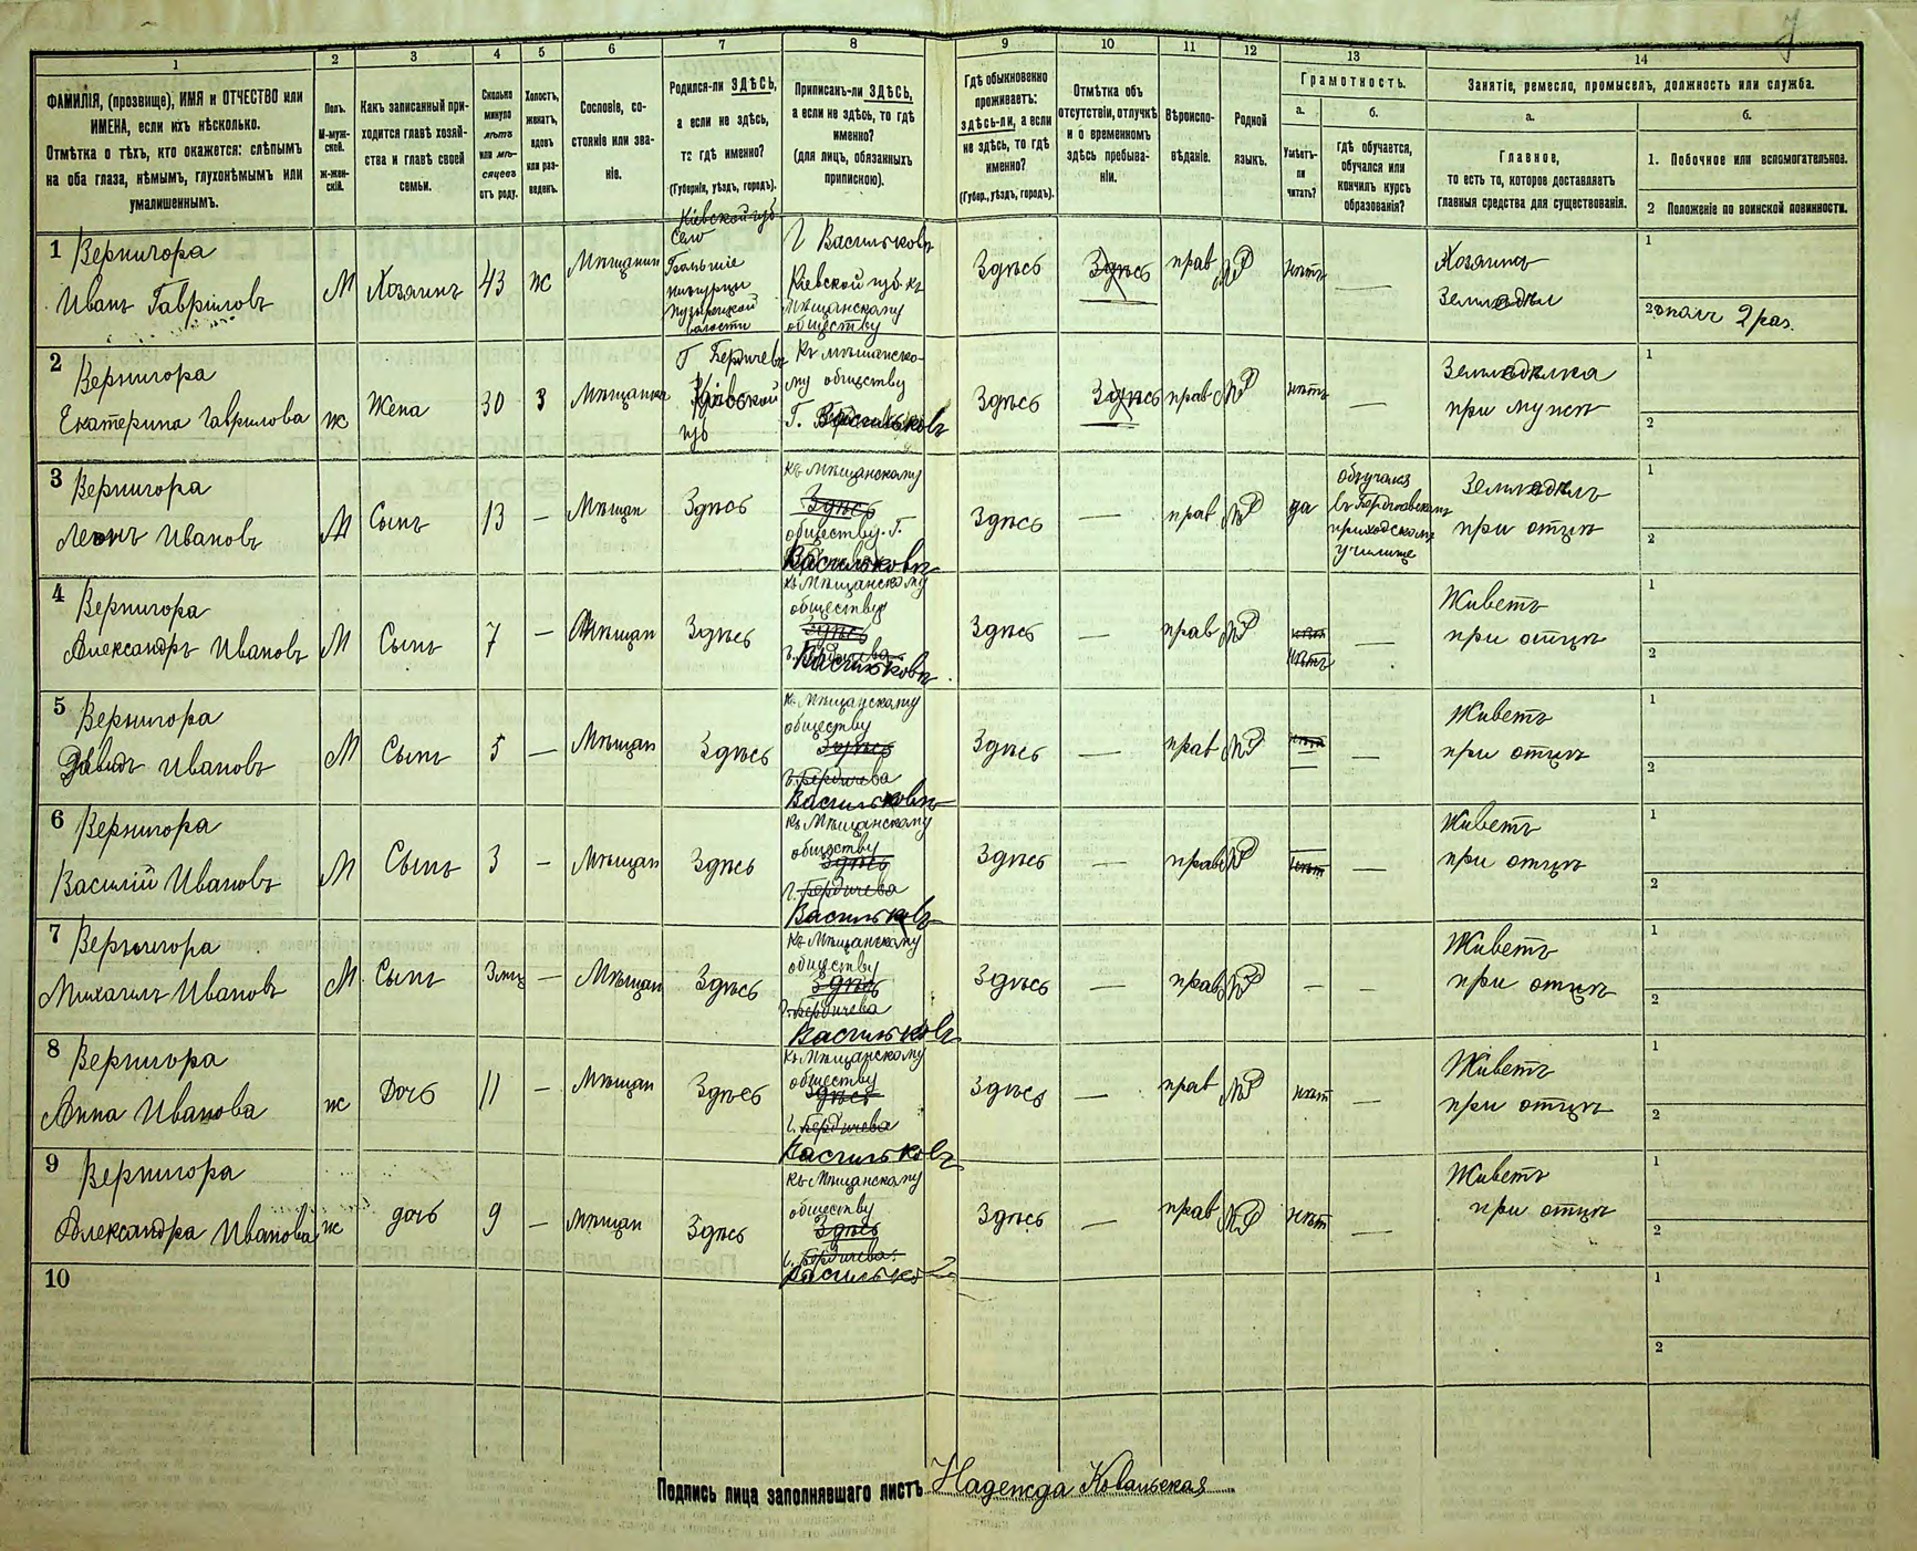 7
1
2
3
4
5
6
7
8
9
10
11
12
13
14
ФАМИЛІЯ, (прозвище), ИМЯ и ОТЧЕСТВО или
ИМЕНА, если ихъ нѣсколько.
Отмѣтка о тѣхъ, кто окажется: слѣпымъ
на оба глаза, нѣмымъ, глухонѣмымъ или
умалишеннымъ.
Полъ.
М-муж-
ской.
Ж-жен-
скій.
Какъ записанный при-
ходится главѣ хозяй-
ства и главѣ своей
семьи.
Сколько
минуло
лѣтъ
или мѣ-
сяцевъ
отъ роду.
Холостъ,
женатъ,
вдовъ
или раз-
веденъ.
Сословіе, со-
стояніе или зва-
ніе.
Родился-ли ЗДѢСЬ,
а если не здѣсь,
то гдѣ именно?
(Губернія, уѣздъ, городъ).
Приписанъ-ли ЗДѢСЬ,
а если не здѣсь, то гдѣ
именно?
(для лицъ, обязанныхъ
припискою).
Гдѣ обыкновенно
проживаетъ:
здѣсь-ли, а если
не здѣсь, то гдѣ
именно?
(Губер., уѣздъ, городъ).
Отмѣтка объ
отсутствіи, отлучкѣ
и о временномъ
здѣсь пребыва-
ніи.
Вѣроиспо-
вѣданіе.
Родной
языкъ.
Грамотность.
а.
Умѣетъ-
ли
читать?
б.
гдѣ обучается,
обучался или
кончилъ курсъ
образованія?
Занятіе, ремесло, промыселъ, должность или служба.
а.
Главное,
то есть то, которое доставляетъ
главныя средства для существованія.
б.
1. Побочное или вспомогательное.
2 Положеніе по воинской повинности.
1 Вернигора
Иванъ Гавриловъ
М
Хозяинъ
43
ж
Мѣщанин
Кіевской губ
село
волости
Г Васильковъ
Кіевской губ. къ
Мѣщанскому
обществу
Здѣсь
Здѣсь
прав
нѣтъ
—
Хозяинъ
Земледѣл
1
2 ополч 2 раз.
2 Вернигора
Екатерина Гаврилова
ж
Жена
30
З
Мѣщанка
Г Бердичевъ
Кіевской
губ
Къ мѣщанско-
му обществу
Г. Васильковъ
Здѣсь
Здѣсь
прав
нѣтъ
—
Земледѣлка
при мужѣ
1
2
3 Вернигора
Леонъ Ивановъ
М
Сынъ
13
—
Мѣщан
Здѣсь
къ Мѣщанскому
Здѣсь
обществу. Г.
Васильковъ
Здѣсь
—
прав
да
обучался
приходскомъ
училище
Земледѣлъ
при отцѣ
1
2
4 Вернигора
Александръ Ивановъ
М
Сынъ
7
—
Мѣщан
Здѣсь
къ Мѣщанскому
обществу
Здѣсь
г. Бердичева
Васильковъ
Здѣсь
—
прав
нѣтъ
нѣтъ
—
Живетъ
при отцѣ
1
2
5 Вернигора
Давидъ Ивановъ
М
Сынъ
5
—
Мѣщан
Здѣсь
къ Мѣщанскому
обществу
Здѣсь
г. Бердичева
Васильковъ
Здѣсь
—
прав
нѣтъ
—
Живетъ
при отцѣ
1
2
6 Вернигора
Василій Ивановъ
М
Сынъ
3
—
Мѣщан
Здѣсь
къ Мѣщанскому
обществу
Здѣсь
г. Бердичева
Васильковъ
Здѣсь
—
прав
нѣт
—
Живетъ
при отцѣ
1
2
7 Вернигора
Михаилъ Ивановъ
М
Сынъ
3 мц
—
Мѣщан
Здѣсь
къ Мѣщанскому
обществу
Здѣсь
г. Бердичева
Васильковъ
Здѣсь
—
прав
—
—
Живетъ
при отцѣ
1
2
8 Вернигора
Анна Иванова
ж
Дочь
11
—
Мѣщан
Здѣсь
къ Мѣщанскому
обществу
Здѣсь
г. Бердичева
Васильковъ
Здѣсь
—
прав
нѣт
—
Живетъ
при отцѣ
1
2
9 Вернигора
Александра Иванова
ж
дочь
9
—
Мѣщан
Здѣсь
къ Мѣщанскому
обществу
Здѣсь
г. Бердичева
Васильковъ
Здѣсь
—
прав
нѣт
—
Живетъ
при отцѣ
1
2
10
1
2
Подпись лица заполнявшаго листъ Надежда Ковальская